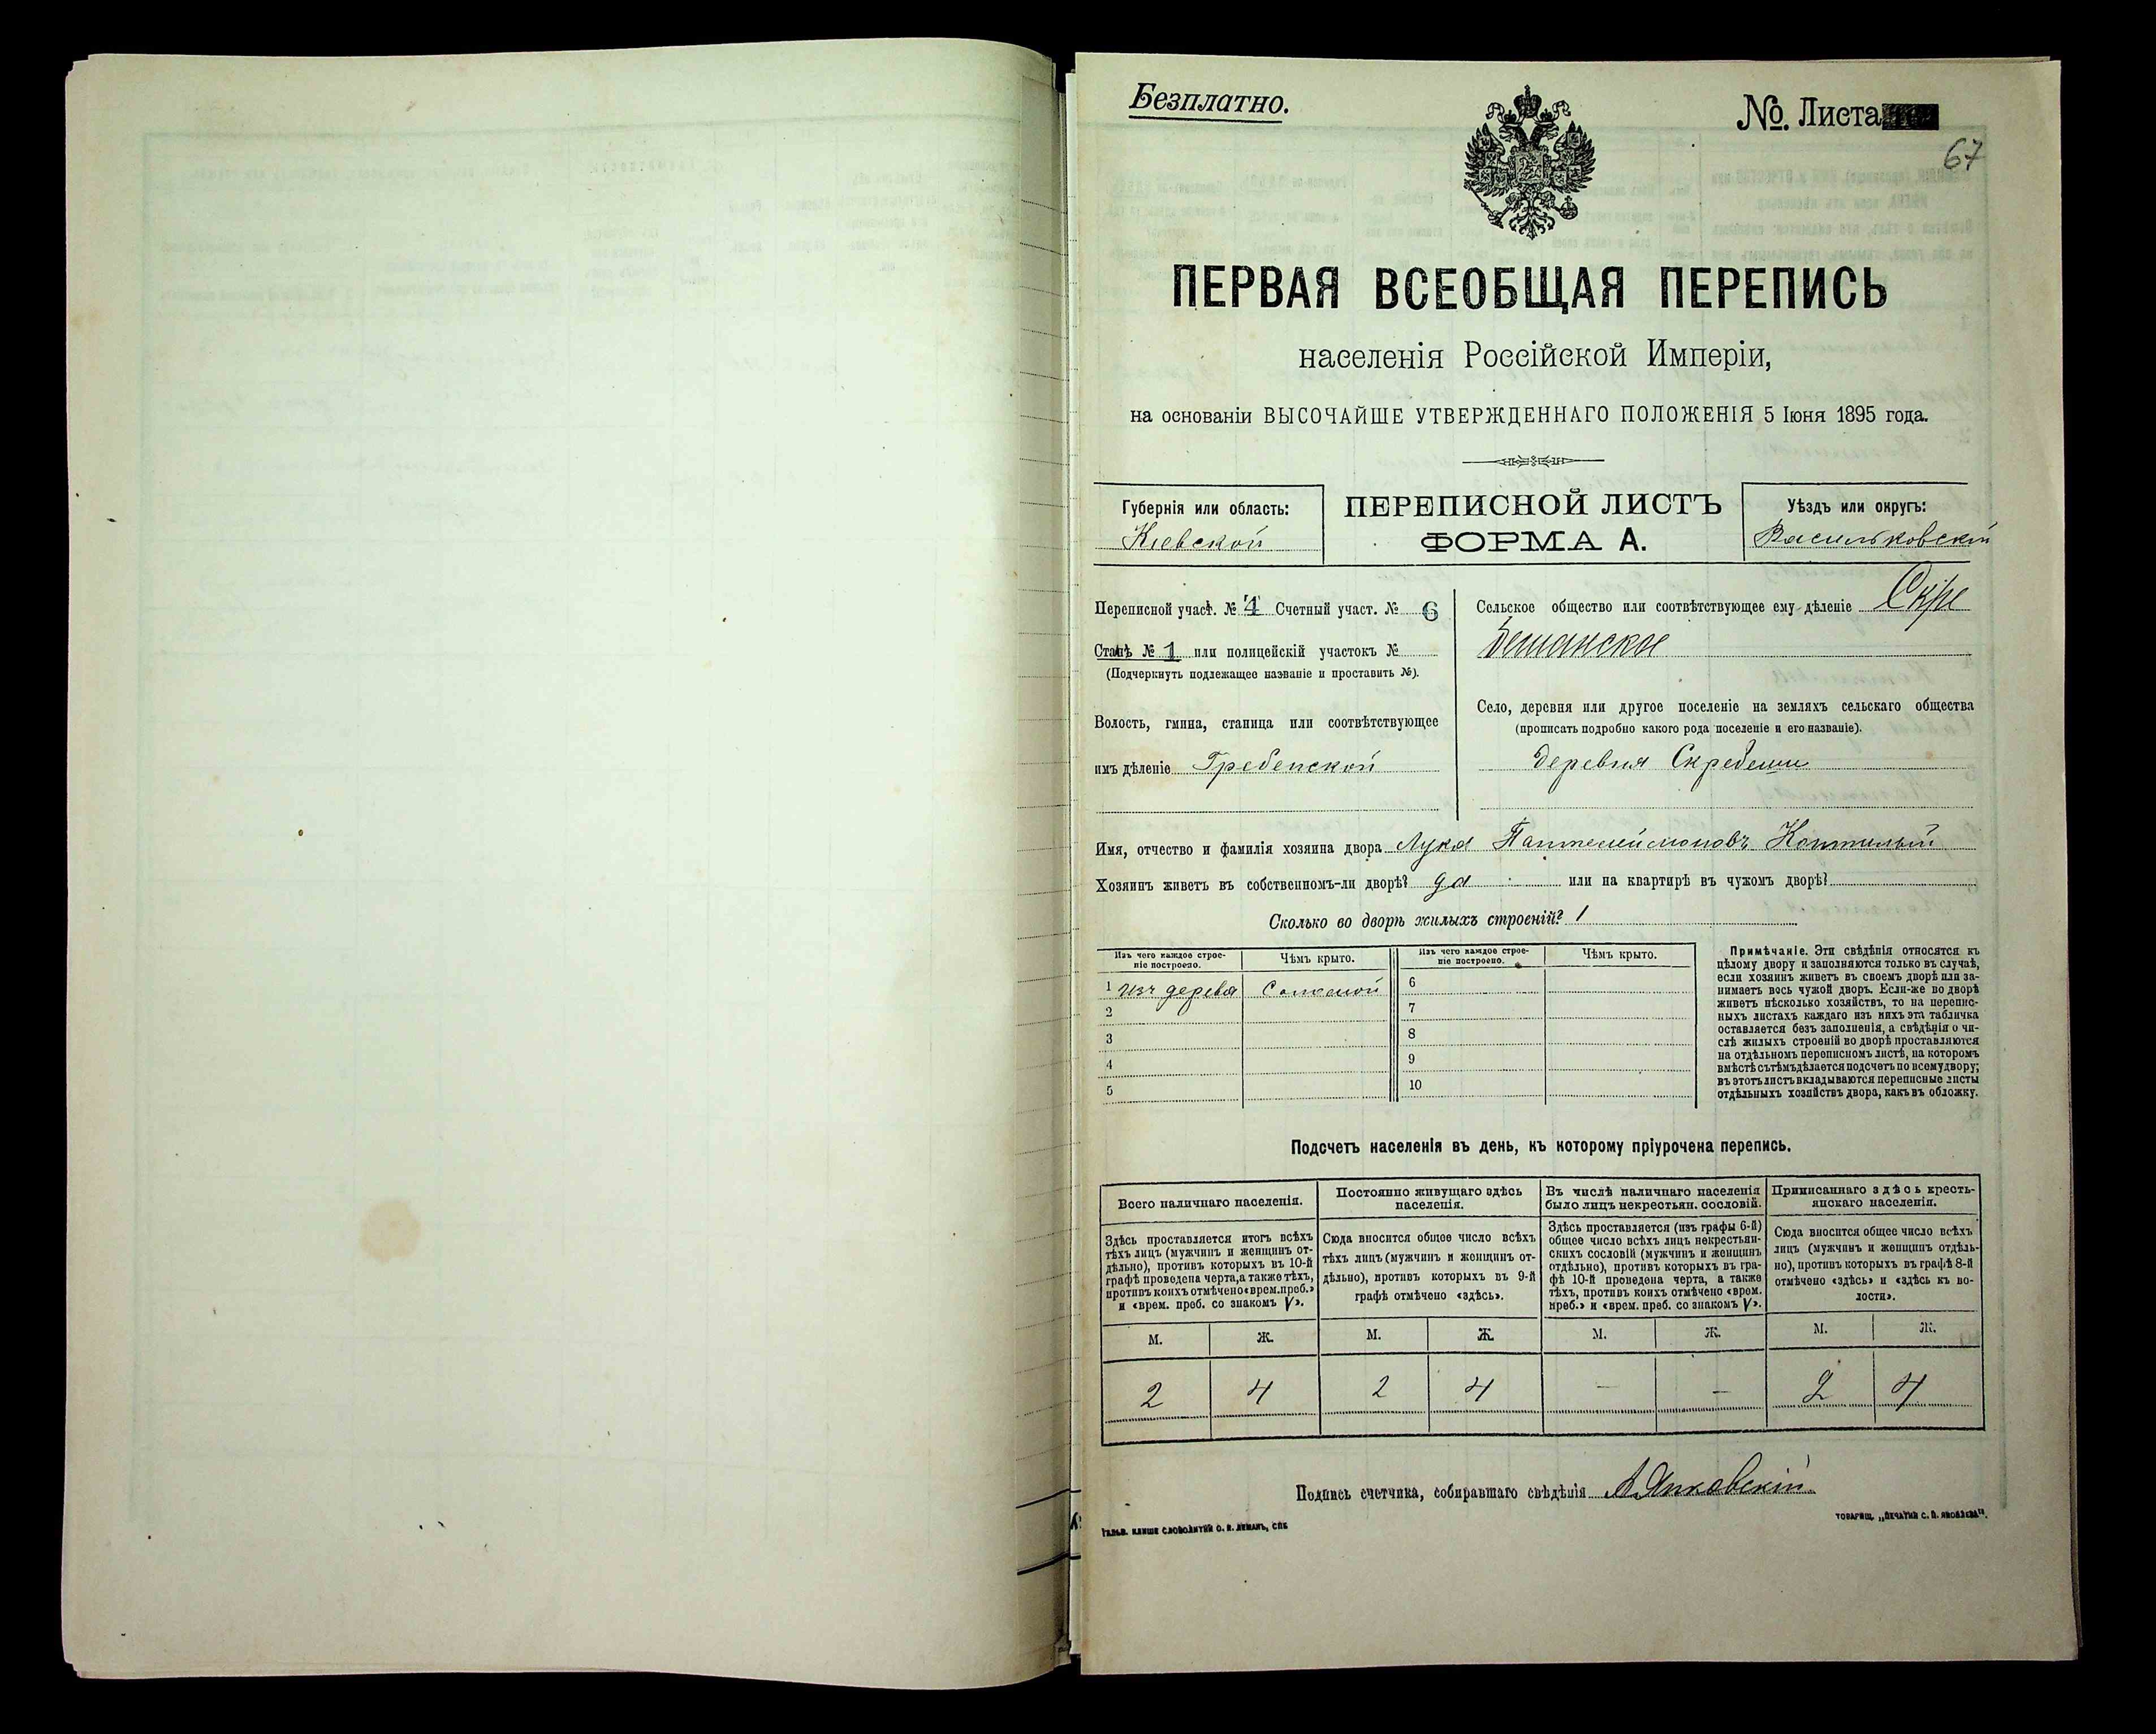 Безплатно.
№. Листа
67
ПЕРВАЯ ВСЕОБЩАЯ ПЕРЕПИСЬ
населенія Россійской Имперіи,
на основаніи ВЫСОЧАЙШЕ УТВЕРЖДЕННАГО ПОЛОЖЕНІЯ 5 Іюня 1895 года.
Губернія или область:
Кіевской
ПЕРЕПИСНОЙ ЛИСТЪ
ФОРМА А.
Уѣздъ или округъ:
Васильковскій
Переписной участ. № 4 Счетный участ. № 6
Станъ № 1 или полицейскій участокъ №
(Подчеркнуть подлежащее названіе и проставить №).
Волость, гмина, станица или соотвѣтствующее
имъ дѣленіе Гребенской
Сельское общество или соотвѣтствующее ему дѣленіе Скре
бешанское
Село, деревня или другое поселеніе на земляхъ сельскаго общества
(прописать подробно какого рода поселеніе и его названіе).
деревня Скребеши
Имя, отчество и фамилія хозяина двора Лука Пантелеймоновъ
Хозяинъ живетъ въ собственномъ-ли дворѣ? да или на квартирѣ въ чужомъ дворѣ?
Сколько во дворѣ жилыхъ строеній? 1
Изъ чего каждое строе-
ніе построено.
Чѣмъ крыто.
Изъ чего каждое строе-
ніе построено.
Чѣмъ крыто.
1 изъ дерева Соломой 6
2 7
3 8
4 9
5 10
Примѣчаніе. Эти свѣдѣнія относятся къ
цѣлому двору и заполняются только въ случаѣ,
если хозяинъ живетъ въ своемъ дворѣ или за-
нимаетъ весь чужой дворъ. Если-же во дворѣ
живетъ нѣсколько хозяйствъ, то на перепис-
ныхъ листахъ каждаго изъ нихъ эта табличка
оставляется безъ заполненія, а свѣдѣнія о чи-
слѣ жилыхъ строеній во дворѣ проставляются
на отдѣльномъ переписномъ листѣ, на которомъ
вмѣстѣ съ тѣмъ дѣлается подсчетъ по всему двору;
въ этотъ листъ вкладываются переписные листы
отдѣльныхъ хозяйствъ двора, какъ въ обложку.
Подсчетъ населенія въ день, къ которому пріурочена перепись.
Всего наличнаго населенія.
Здѣсь проставляется итогъ всѣхъ
тѣхъ лицъ (мужчинъ и женщинъ от-
дѣльно), противъ которыхъ въ 10-й
графѣ проведена черта, а также тѣхъ,
противъ коихъ отмѣчено «врем. преб.»
и «врем. преб. со знакомъ V».
М. Ж.
2 4
Постоянно живущаго здѣсь
населенія.
Сюда вносится общее число всѣхъ
тѣхъ лицъ (мужчинъ и женщинъ от-
дѣльно), противъ которыхъ въ 9-й
графѣ отмѣчено «здѣсь».
М. Ж.
2 4
Въ числѣ наличнаго населенія
было лицъ некрестьян. сословій.
Здѣсь проставляется (изъ графы 6-й)
общее число всѣхъ лицъ некрестьян-
скихъ сословій (мужчинъ и женщинъ
отдѣльно), противъ которыхъ въ гра-
фѣ 10-й проведена черта, а также
тѣхъ, противъ коихъ отмѣчено «врем.
преб.» и «врем. преб. со знакомъ V».
М. Ж.
— —
Приписаннаго здѣсь кресть-
янскаго населенія.
Сюда вносится общее число всѣхъ
лицъ (мужчинъ и женщинъ отдѣль-
но), противъ которыхъ въ графѣ 8-й
отмѣчено «здѣсь» и «здѣсь къ во-
лости».
М. Ж.
2 4
Подпись счетчика, собиравшаго свѣдѣнія
ГАЛЬВ. КЛИШЕ СЛОВОЛИТНИ О. И. ЛЕМАНЪ, СПБ
ТОВАРИЩ. „ПЕЧАТНЯ С. П. ЯКОВЛЕВА“.